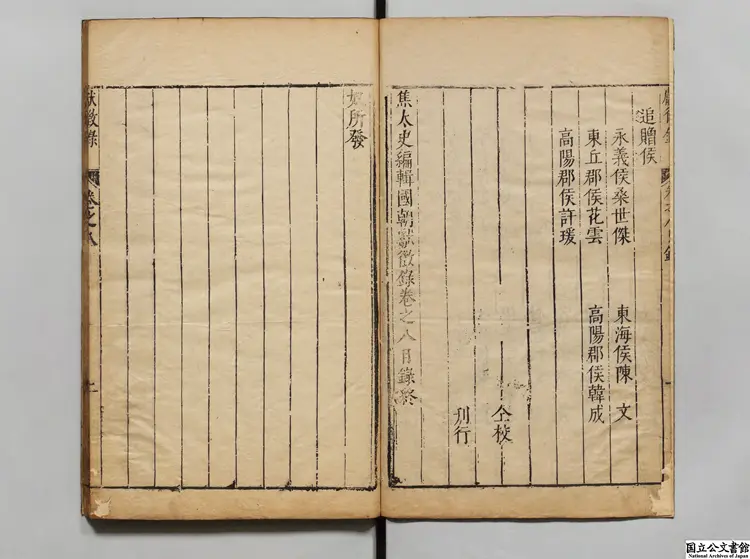 追贈侯
永義侯桑世傑
東海侯陳　文
東丘郡侯花雲
高陽郡侯韓成
高陽郡侯許瑗
仝校
刋行
焦太史編輯國朝獻徵錄卷之八目錄終
所發
獻徵錄
卷之八
国立公文書館
National Archives of Japan